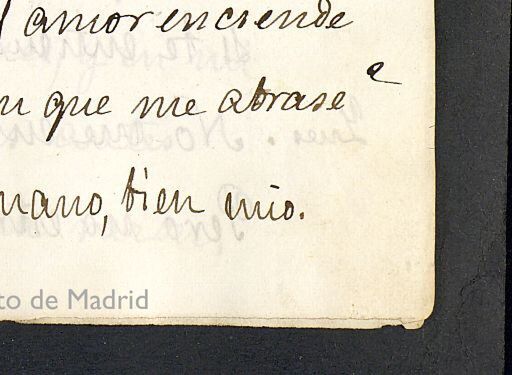 amor enciende
que me abrase
mano, bien mio.
to de Madrid